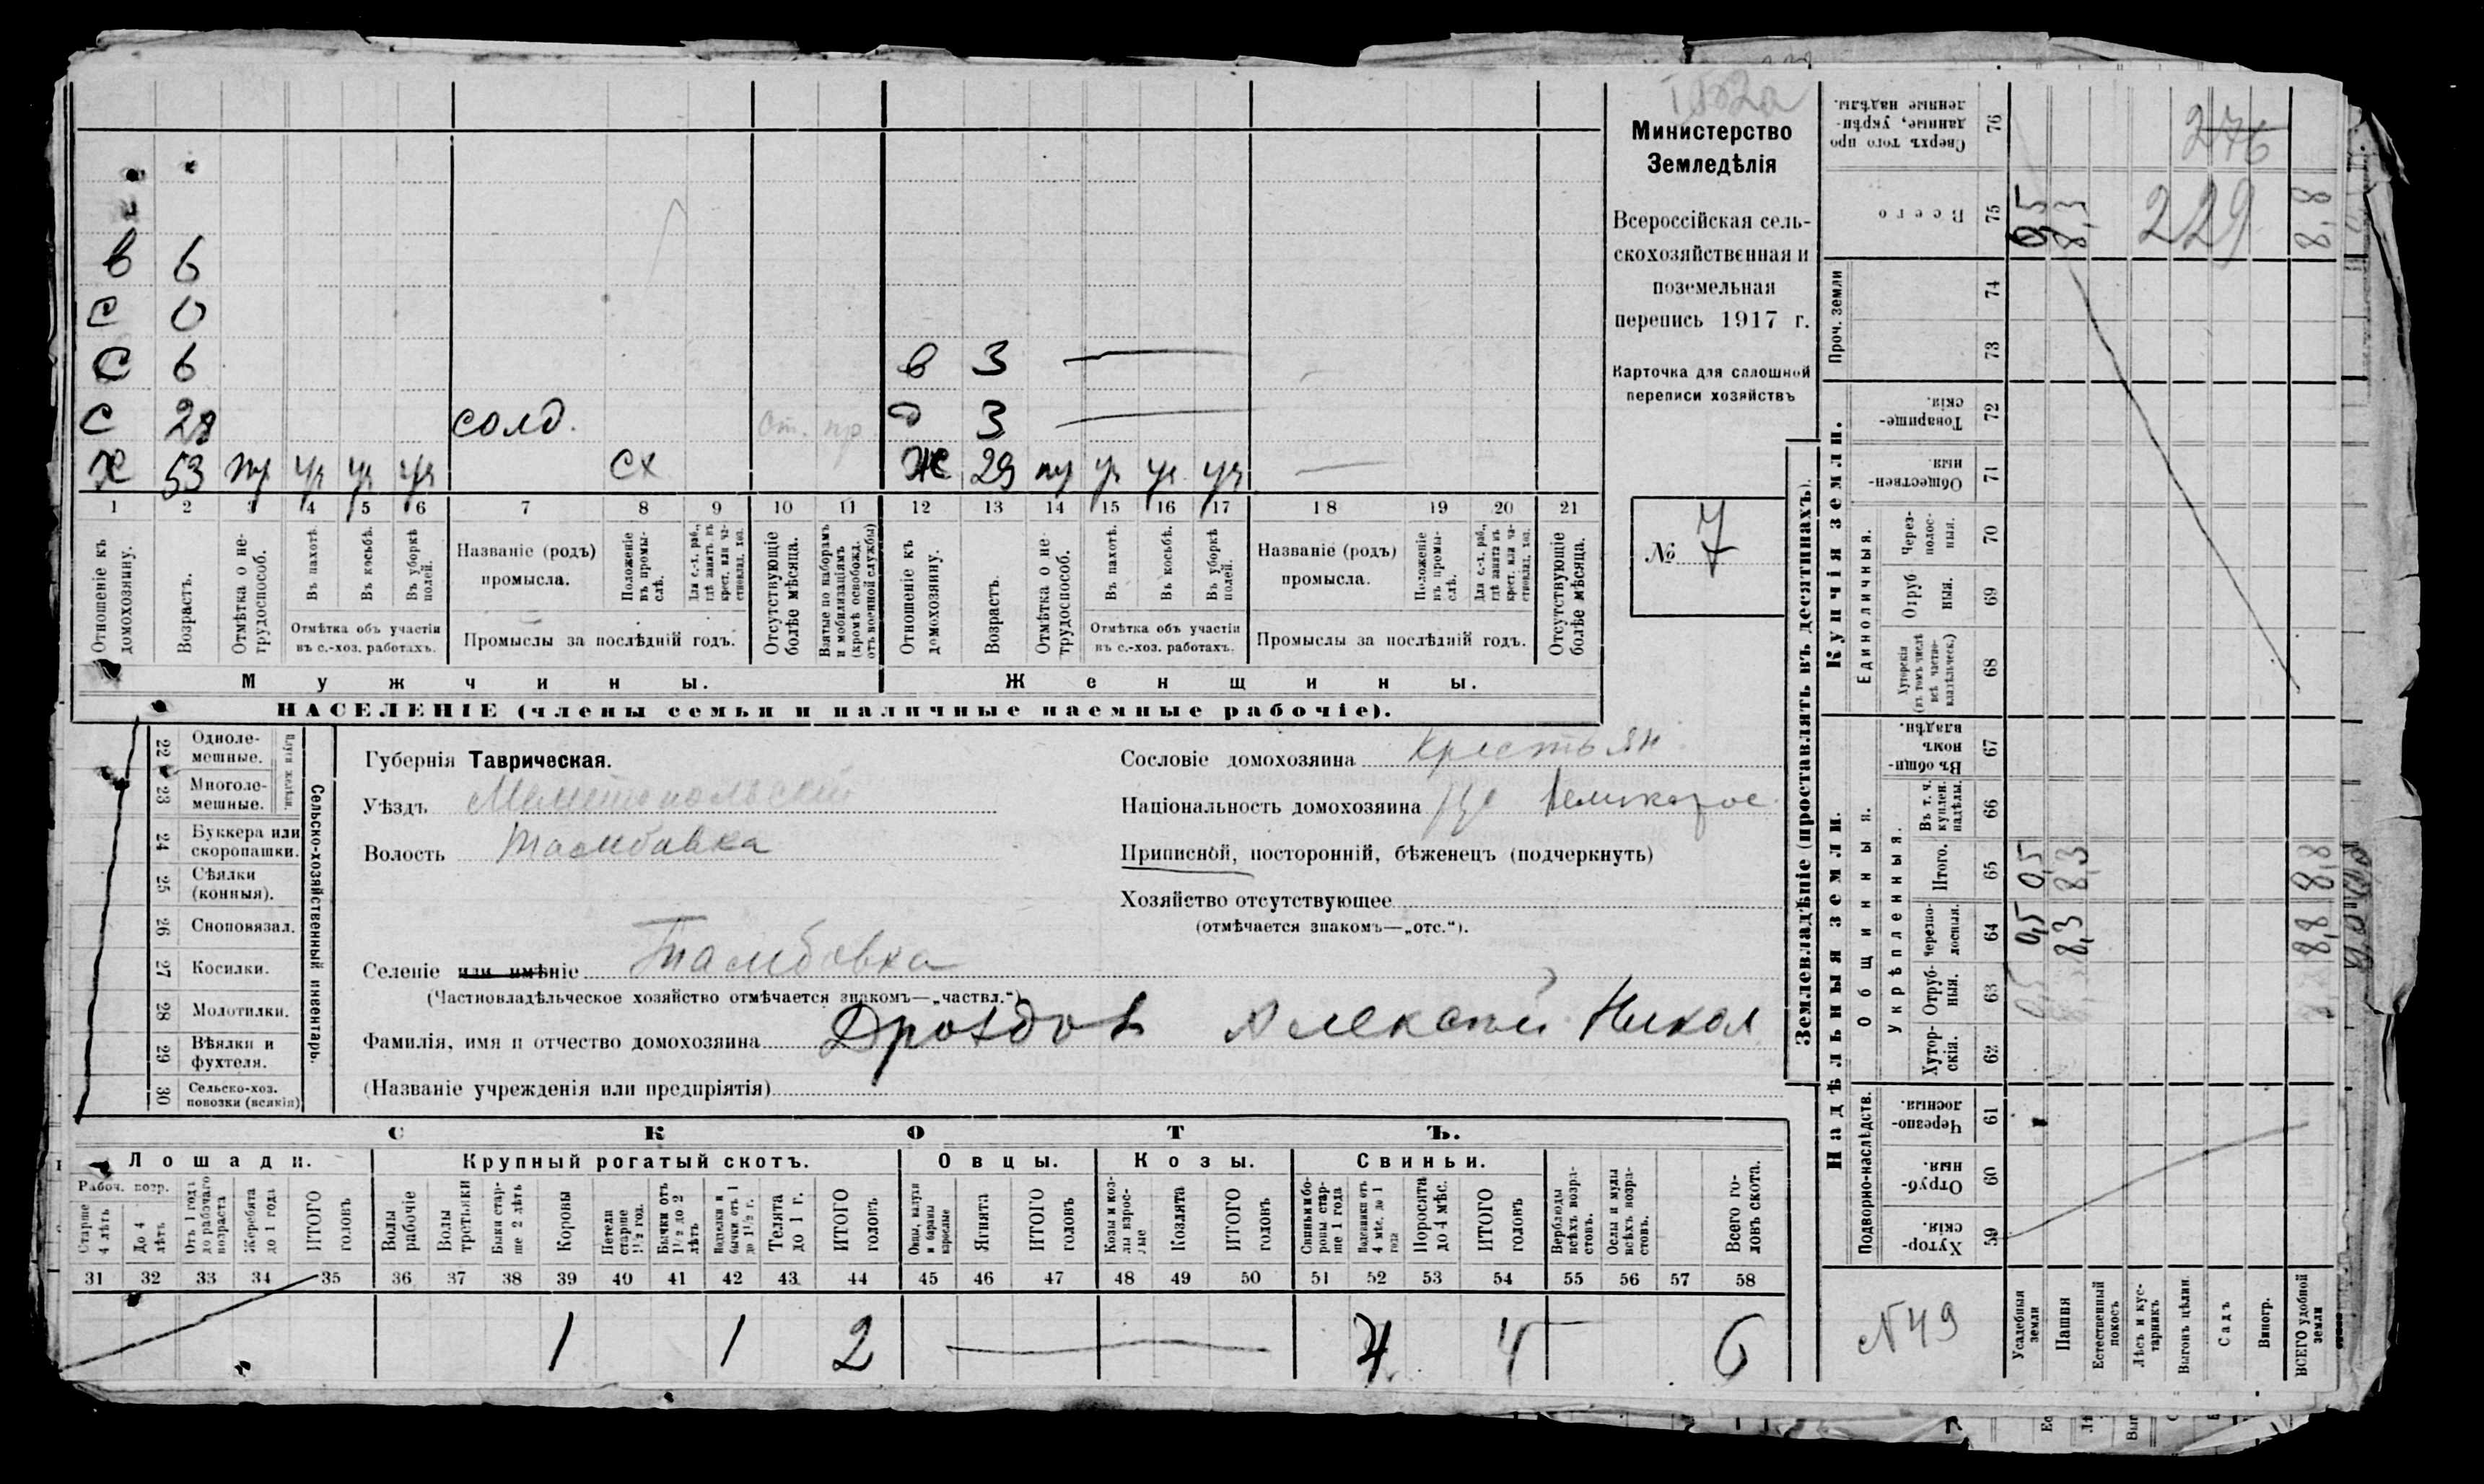 Министерство
Земледѣлія
Всероссійская сель-
скохозяйственная и
поземельная
перепись 1917 г.
Карточка для сплошной
переписи хозяйствъ
№ 7
в 6
с 0
с 6 в 3
с 28 солд. ст. пр д 3
х 53 пр уч уч уч сх ж 29 пр уч уч уч
1 2 3 4 5 6 7 8 9 10 11 12 13 14 15 16 17 18 19 20 21
Отношеніе къ домохозяину.
Возрастъ.
Отмѣтка о не-трудоспособ.
Въ пахотѣ.
Въ косьбѣ.
Въ уборкѣ полей.
Отмѣтка объ участіи въ с.-хоз. работахъ.
Названіе (родъ) промысла.
Положеніе въ промы-слѣ.
Для с.-х. раб., гдѣ занятъ въ крест. или ча-стновлад. хоз.
Промыслы за послѣдній годъ.
Отсутствующіе болѣе мѣсяца.
Взятые по наборамъ и мобилизаціямъ (кромѣ освобожд. отъ военной службы)
Отношеніе къ домохозяину.
Возрастъ.
Отмѣтка о не-трудоспособ.
Въ пахотѣ.
Въ косьбѣ.
Въ уборкѣ полей.
Отмѣтка объ участіи въ с.-хоз. работахъ.
Названіе (родъ) промысла.
Положеніе въ промы-слѣ.
Для с.-х. раб., гдѣ занята въ крест. или ча-стновлад. хоз.
Промыслы за послѣдній годъ.
Отсутствующіе болѣе мѣсяца.
Мужчины. Женщины.
НАСЕЛЕНІЕ (члены семьи и наличные наемные рабочіе).
Сельско-хозяйственный инвентарь.
Плуги желѣзн.
22 Одноле-мешные.
23 Многоле-мешные.
24 Буккера или скоропашки.
25 Сѣялки (конныя).
26 Сноповязал.
27 Косилки.
28 Молотилки.
29 Вѣялки и фухтеля.
30 Сельско-хоз. повозки (всякія)
Губернія Таврическая.
Уѣздъ Мелитопольский
Волость Тамбовка
Селеніе или имѣніе Тамбовка
(Частновладѣльческое хозяйство отмѣчается знакомъ—„частвл.“)
Фамилія, имя и отчество домохозяина Дроздов Алексѣй Никол
(Названіе учрежденія или предпріятія)
Сословіе домохозяина крестьян
Національность домохозяина великорос
Приписной, посторонній, бѣженецъ (подчеркнуть)
Хозяйство отсутствующее
(отмѣчается знакомъ—„отс.“).
СКОТЪ.
Лошади. Крупный рогатый скотъ. Овцы. Козы. Свиньи.
Рабоч. возр.
Старше 4 лѣтъ
До 4 лѣтъ
Отъ 1 года до рабочаго возраста
Жеребята до 1 года
ИТОГО головъ
Волы рабочіе
Волы третьяки
Быки стар-ше 2 лѣтъ
Коровы
Нетели старше 1½ год.
Бычки отъ 1½ до 2 лѣтъ
Нателки и бычки отъ 1 до 1½ г.
Телята до 1 г.
ИТОГО головъ
Овцы, валухи и бараны взрослые
Ягнята
ИТОГО головъ
Козы и коз-лы взрос-лые
Козлята
ИТОГО головъ
Свиньи и бо-ровы стар-ше 1 года
Подсвинки отъ 4 мѣс. до 1 года
Поросята до 4 мѣс.
ИТОГО головъ
Верблюды всѣхъ возра-стовъ.
Ослы и мулы всѣхъ возра-стовъ.
Всего го-ловъ скота.
31 32 33 34 35 36 37 38 39 40 41 42 43 44 45 46 47 48 49 50 51 52 53 54 55 56 57 58
1 1 2 4 4 6
Землевладѣніе (проставлять въ десятинахъ).
Купчія земли.
Надѣльныя земли.
Сверхъ того про-данные, укрѣп-ленные надѣлы. 76 276
Всего 75 0,5 8,3 229 8,8
Проч. земли 74
73
Товарище-скія. 72
Обществен-ныя. 71
Единоличныя.
Через-полос-ныя. 70
Отруб-ныя. 69
Хуторскія (въ томъ числѣ всѣ частно-владѣльческ.) 68
Общинныя.
Въ общи-номъ владѣн. 67
Укрѣпленныя.
Въ т. ч. куплен. надѣлы. 66
Итого. 65 0,5 8,3 8,8
Черезпо-лосныя. 64 0,5 8,3 8,8
Отруб-ныя. 63 0,5
Хутор-скія. 62
Подворно-наслѣдств.
Черезпо-лосныя. 61
Отруб-ныя. 60
Хутор-скія. 59
N 49
Усадебныя земли
Пашня
Естественный покосъ
Лѣсъ и кус-тарникъ
Выгонъ цѣлин.
Садъ
Виногр.
ВСЕГО удобной земли